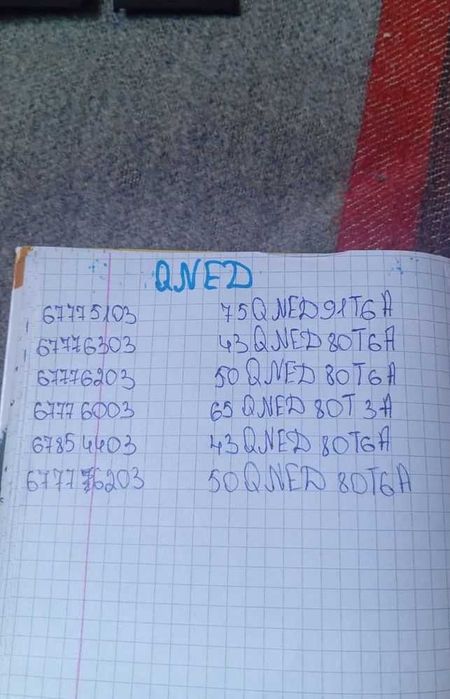 QNED
67775103 75QNED91T6A
67776303 43QNED80T6A
67776203 50QNED80T6A
67776003 65QNED80T3A
67854403 43QNED80T6A
50QNED80T6A